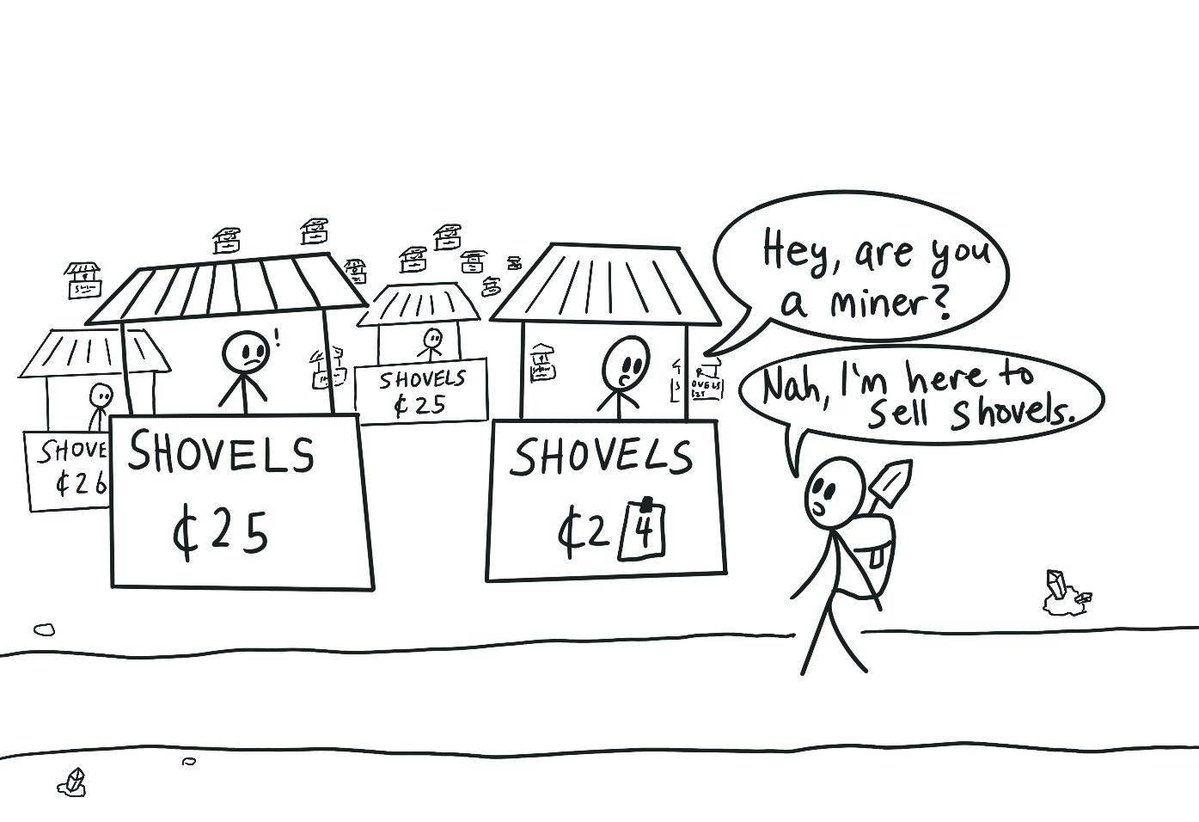 Hey, are you
a miner?
Nah, I'm here to
sell shovels.
SHOVELS
¢25
SHOVELS
¢24
SHOVELS
¢25
SHOVE
¢26